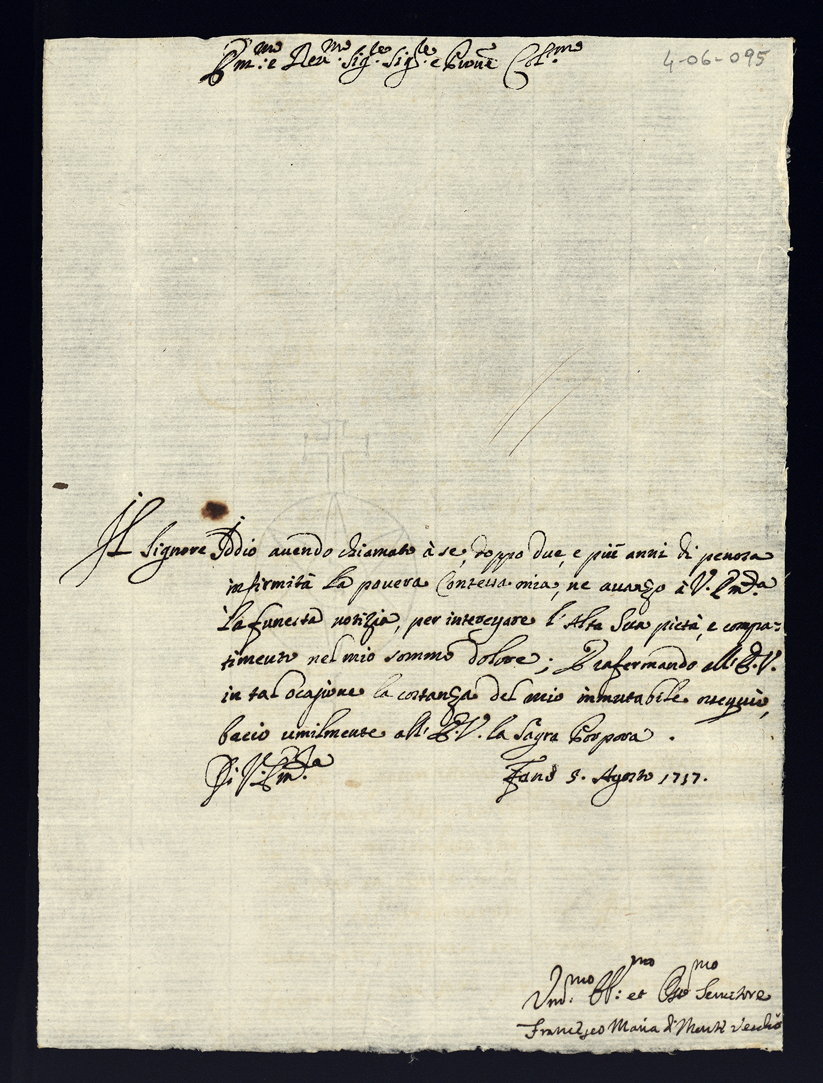 Em:mo e Reu:mo Sig:re Sig:re e Prone Col:mo
4-06-095
Il Signore Iddio auendo chiamato à se, doppo due, e più anni di penosa
infirmità la pouera Contessa mia, ne auanzo à V. Em:za
la funesta notizia, per intercedere l'Alta Sua pietà, e compa-
timento nel mio sommo dolore; E rafermando all'E.V.
in tal ocasione la costanza del mio immutabile ossequio,
bacio umilmente all'E.V. la Sagra Porpora.
Di V. Em:za
Fano 5. Agosto 1717.
Um:mo et Seruitore
Francesco Maria di Monte Vecchio